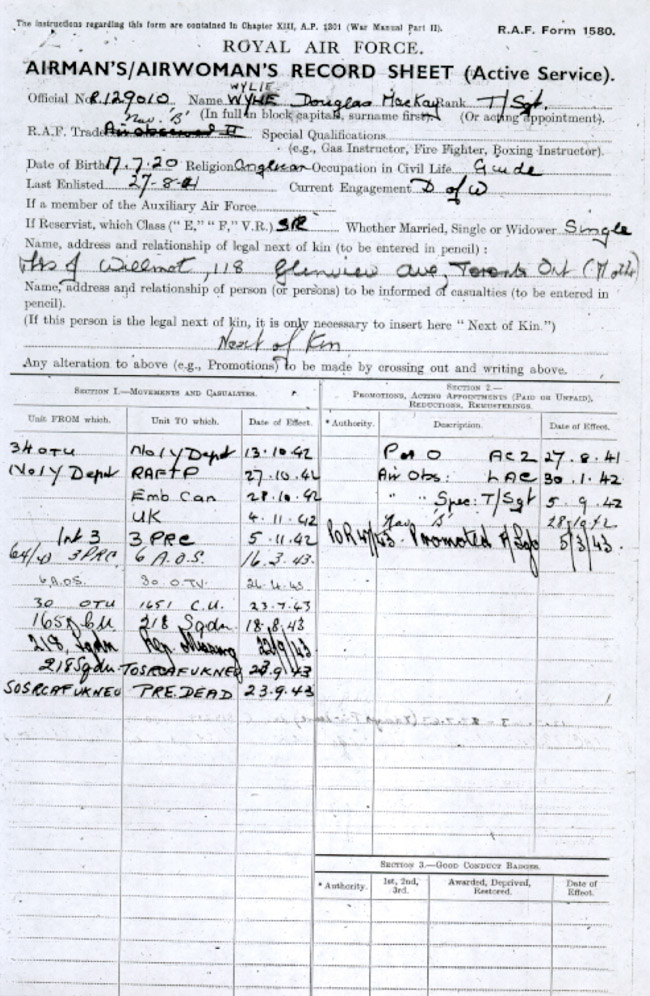 The instructions regarding this form are contained in Chapter XIII, A.P. 1301 (War Manual Part II).
R.A.F. Form 1580.
ROYAL AIR FORCE.
AIRMAN'S/AIRWOMAN'S RECORD SHEET (Active Service).
WYLIE
Official No. R.129010 Name WYLIE Douglas MacKay Rank T/Sgt.
(In full in block capitals, surname first). (Or acting appointment).
Nav. 'B'
R.A.F. Trade Air observer II Special Qualifications
(e.g., Gas Instructor, Fire Fighter, Boxing Instructor).
Date of Birth 17.7.20 Religion Anglican Occupation in Civil Life Guide
Last Enlisted 27-8-41 Current Engagement D of W
If a member of the Auxiliary Air Force
If Reservist, which Class (" E," " F," V.R.) SR Whether Married, Single or Widower Single
Name, address and relationship of legal next of kin (to be entered in pencil) :
Willmot, 118 Glenview Ave, Toronto Ont
Name, address and relationship of person (or persons) to be informed of casualties (to be entered in
pencil).
(If this person is the legal next of kin, it is only necessary to insert here " Next of Kin.")
Next of Kin
Any alteration to above (e.g., Promotions) to be made by crossing out and writing above.
SECTION 1.—MOVEMENTS AND CASUALTIES.
Unit FROM which. Unit TO which. Date of Effect.
34 OTU No 1 Y Depot 13.10.42
No 1 Y Depot RAFTP 27.10.42
Emb Can 28.10.42
UK 4.11.42
Int 3 3 PRC 5.11.42
64/43 3 PRC 6 A.O.S. 16.3.43.
6 A.O.S. 30 O.T.U. 26.4.43
30 OTU 1651 C.U. 23.7.43
1651 CU 218 Sqdn. 18.8.43
218, Sqdn Rep. Missing 22/9/43
218 Sqdn TOSRCAFUKNEU 23.9.43
SOSRCAFUKNEU PRE. DEAD 23.9.43
SECTION 2.—
PROMOTIONS, ACTING APPOINTMENTS (PAID OR UNPAID),
REDUCTIONS, REMUSTERINGS.
* Authority. Description. Date of Effect.
P or O AC2 27.8.41
Air Obs: LAC 30.1.42
" " Spec: T/Sgt 5.9.42
Nav 'B' 28/10/42
POR 47/43 Promoted 5/3/43.
SECTION 3.—GOOD CONDUCT BADGES.
* Authority. 1st, 2nd, 3rd. Awarded, Deprived, Restored. Date of Effect.